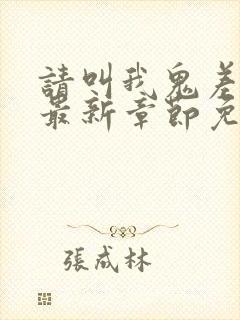 請叫我鬼差
最新章節免
張成林